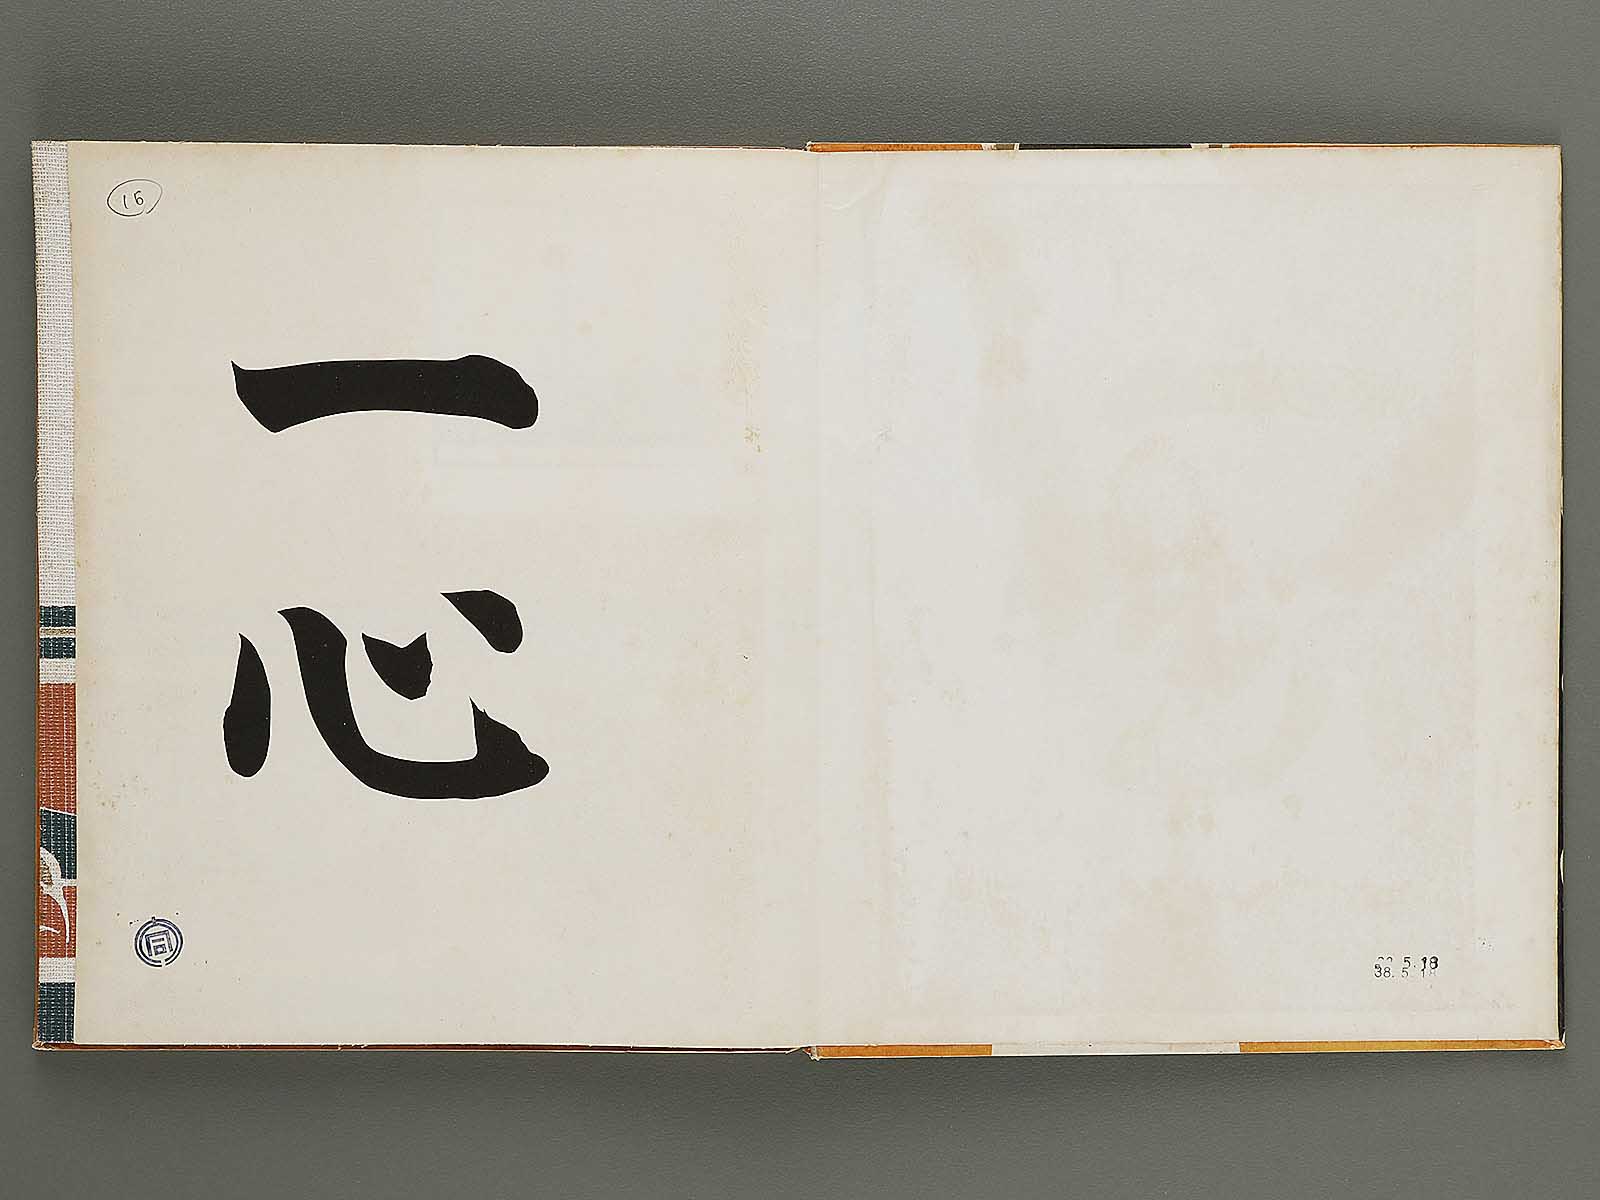 16
一心
5.18
38.5.18